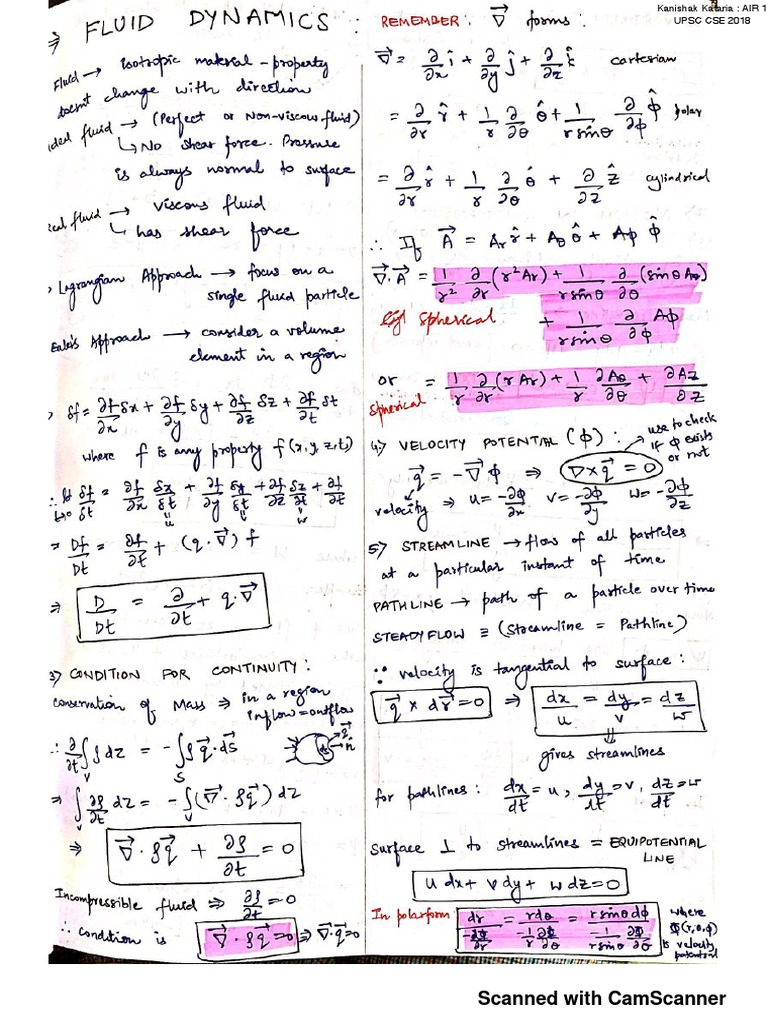 Kanishak Kataria : AIR 1
UPSC CSE 2018
⇒ FLUID DYNAMICS :
Fluid → isotropic material - property
doesn't change with direction
ideal fluid → (Perfect or Non-viscous fluid)
↳ No shear force. Pressure
is always normal to surface
Real fluid → viscous fluid
↳ has shear force
Lagrangian Approach → focus on a
single fluid particle
Euler's Approach → consider a volume
element in a region
δf = ∂f/∂x δx + ∂f/∂y δy + ∂f/∂z δz + ∂f/∂t δt
where f is any property f(x,y,z,t)
∴ lt δt→0 δf/δt = ∂f/∂x δx/δt + ∂f/∂y δy/δt + ∂f/∂z δz/δt + ∂f/∂t
u v w
= Df/Dt = ∂f/∂t + (q·∇) f
⇒ D/Dt = ∂/∂t + q·∇
3) CONDITION FOR CONTINUITY :
Conservation of Mass ⇒ in a region
inflow = outflow
∴ ∂/∂t ∫v ρ dz = - ∫s ρ q·ds
q n̂
⇒ ∫v ∂ρ/∂t dz = - ∫v (∇·ρq) dz
⇒ ∇·ρq + ∂ρ/∂t = 0
Incompressible fluid ⇒ ∂ρ/∂t = 0
∴ condition is ∇·ρq = 0 ⇒ ∇·q = 0
REMEMBER : ∇ forms :
∇ = ∂/∂x î + ∂/∂y ĵ + ∂/∂z k̂ cartesian
= ∂/∂r r̂ + 1/r ∂/∂θ θ̂ + 1/(r sinθ) ∂/∂ϕ ϕ̂ polar
= ∂/∂r r̂ + 1/r ∂/∂θ θ̂ + ∂/∂z ẑ cylindrical
∴ If A = Ar r̂ + Aθ θ̂ + Aϕ ϕ̂
∇·A = 1/r² ∂/∂r (r²Ar) + 1/(r sinθ) ∂/∂θ (sinθ Aθ)
Spherical + 1/(r sinθ) ∂/∂ϕ Aϕ
or = 1/r ∂/∂r (r Ar) + 1/r ∂Aθ/∂θ + ∂Az/∂z
Spherical
4) VELOCITY POTENTIAL (ϕ) : → use to check
if ϕ exists
or not
q = -∇ϕ ⇒ ∇×q = 0
velocity ⇒ u = -∂ϕ/∂x v = -∂ϕ/∂y w = -∂ϕ/∂z
5) STREAMLINE → flow of all particles
at a particular instant of time
PATHLINE → path of a particle over time
STEADY FLOW ≡ (Streamline = Pathline)
∵ velocity is tangential to surface :
q × dr = 0 ⇒ dx/u = dy/v = dz/w
⇓
gives streamlines
for pathlines : dx/dt = u, dy/dt = v, dz/dt = w
Surface ⊥ to streamlines = EQUIPOTENTIAL
LINE
u dx + v dy + w dz = 0
In polar form dr/(-∂ϕ/∂r) = rdθ/(-1/r ∂ϕ/∂θ) = r sinθ dϕ/(-1/(r sinθ) ∂ϕ/∂θ) where
ϕ(r,θ,ϕ)
is velocity
potential
Scanned with CamScanner